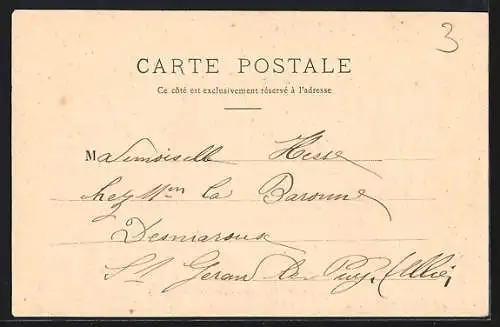 3
CARTE POSTALE
Ce côté est exclusivement réservé à l'adresse
Mademoiselle Hesse
chez Mme la Baronne
Desmaroux
St Géran le Puy. (Allier)